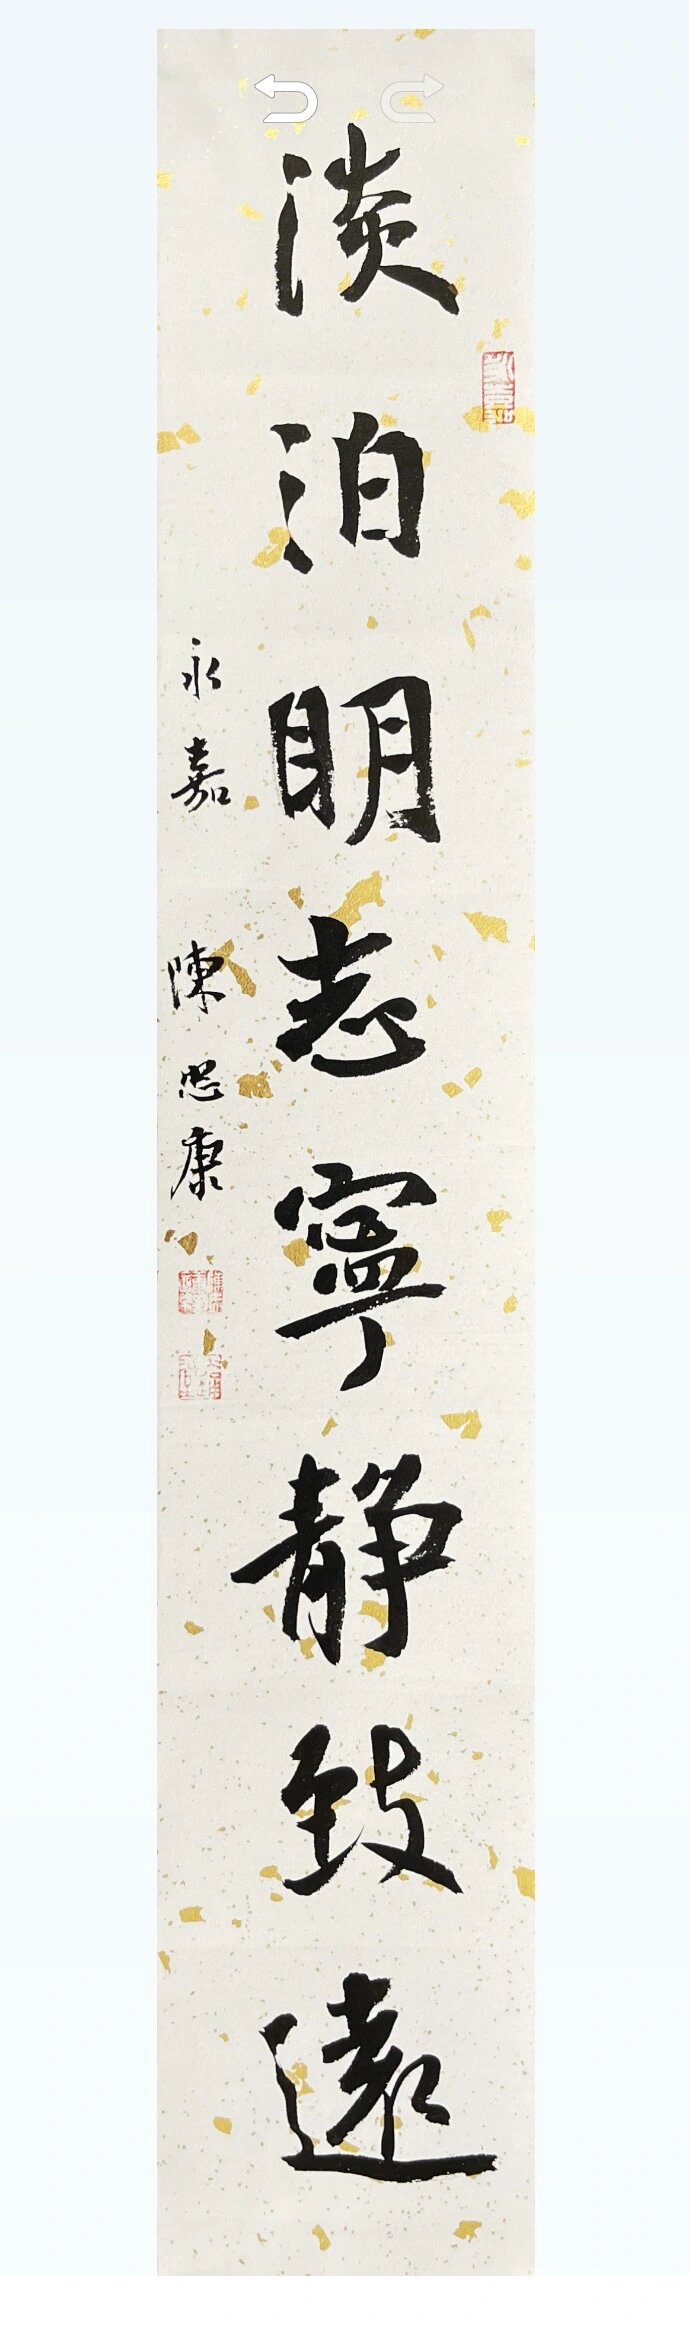 淡泊明志寧靜致遠
永嘉 陳思康